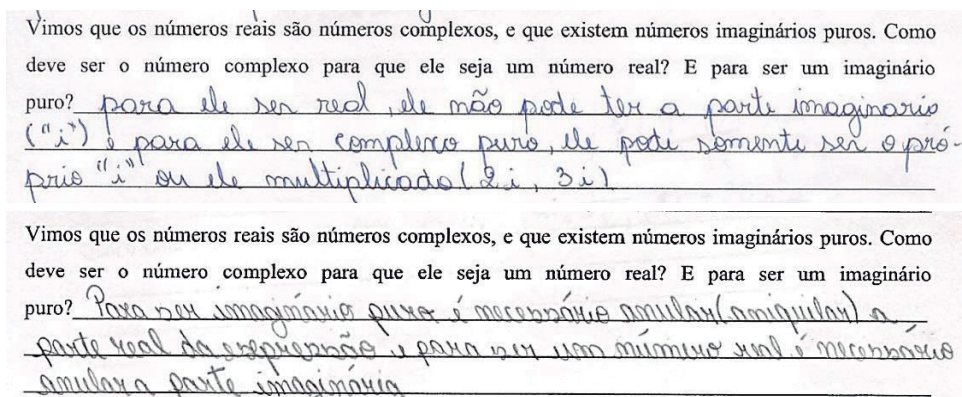 Vimos que os números reais são números complexos, e que existem números imaginários puros. Como
deve ser o número complexo para que ele seja um número real? E para ser um imaginário
puro? para ele ser real, ele não pode ter a parte imaginario
("i") e para ele ser complexo puro, ele pode somente ser o pró-
prio "i" ou ele multiplicado (2i, 3i)
Vimos que os números reais são números complexos, e que existem números imaginários puros. Como
deve ser o número complexo para que ele seja um número real? E para ser um imaginário
puro? Para ser imaginário puro é necessário anular (aniquilar) a
parte real da expressão e para ser um número real é necessário
anular a parte imaginária